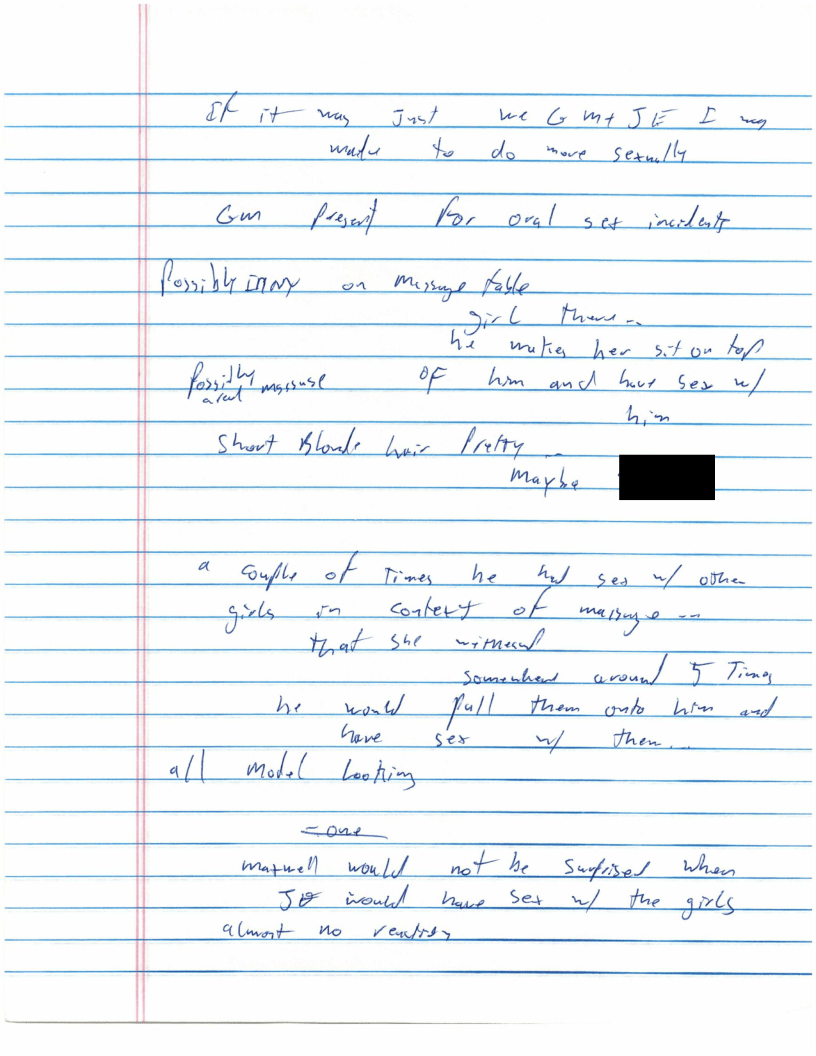 If it was Just me GM + JE I was
made to do more sexually
GM Present for oral sex incidents
Possibly in NY on massage table
girl there --
he makes her sit on top
Possibly massuse OF him and have sex w/
him
Short Blonde hair Pretty --
Maybe
a couple of Times he had sex w/ other
girls in context of massage --
that she witnessed
somewhere around 5 Times
he would pull them onto him and
have sex w/ them...
all model looking
one
maxwell would not be surprised when
JE would have sex w/ the girls
almost no reaction